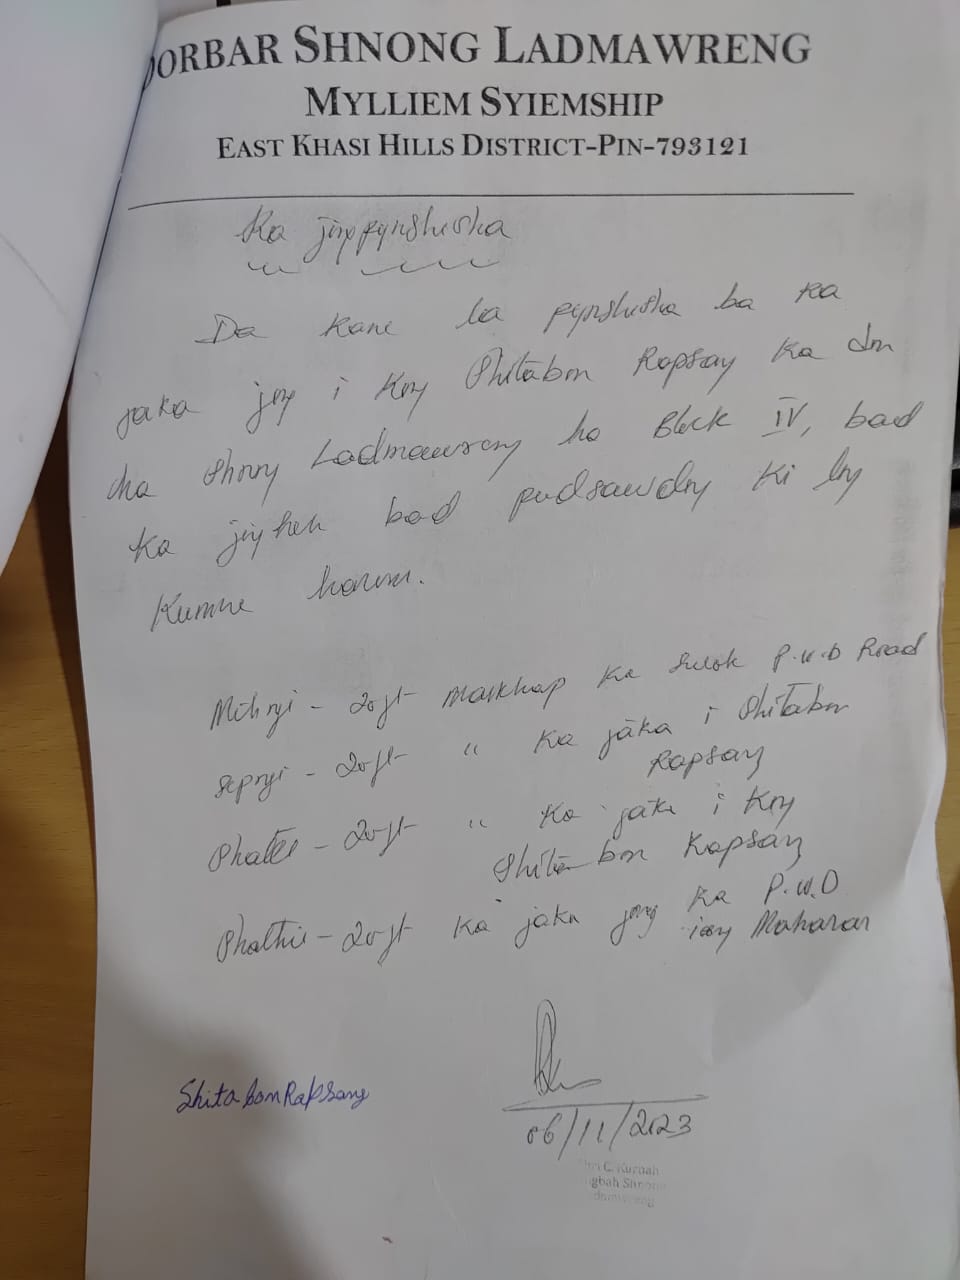 DORBAR SHNONG LADMAWRENG
MYLLIEM SYIEMSHIP
EAST KHASI HILLS DISTRICT-PIN-793121
Ka jingpynshisha
Da kane la pynshisha ba ka
jaka jong i Kong Shitabon Rapsang ka don
ha Shnong Ladmawreng ha Block IV, bad
ka jingheh bad pudsawdong ki long
Kumne harum.
Mihngi - 20ft Markhap ka surok P.W.D Road
Sepngi - 20ft " Ka jaka i Shitabon
Rapsang
Shatei - 20ft " Ka jaka i Kong
Shitabon Rapsang
Shathie - 20ft Ka jaka jong ka P.W.D
Maharan
ShitabonRapsang
06/11/2023
C. Kurbah
gbah Shnong